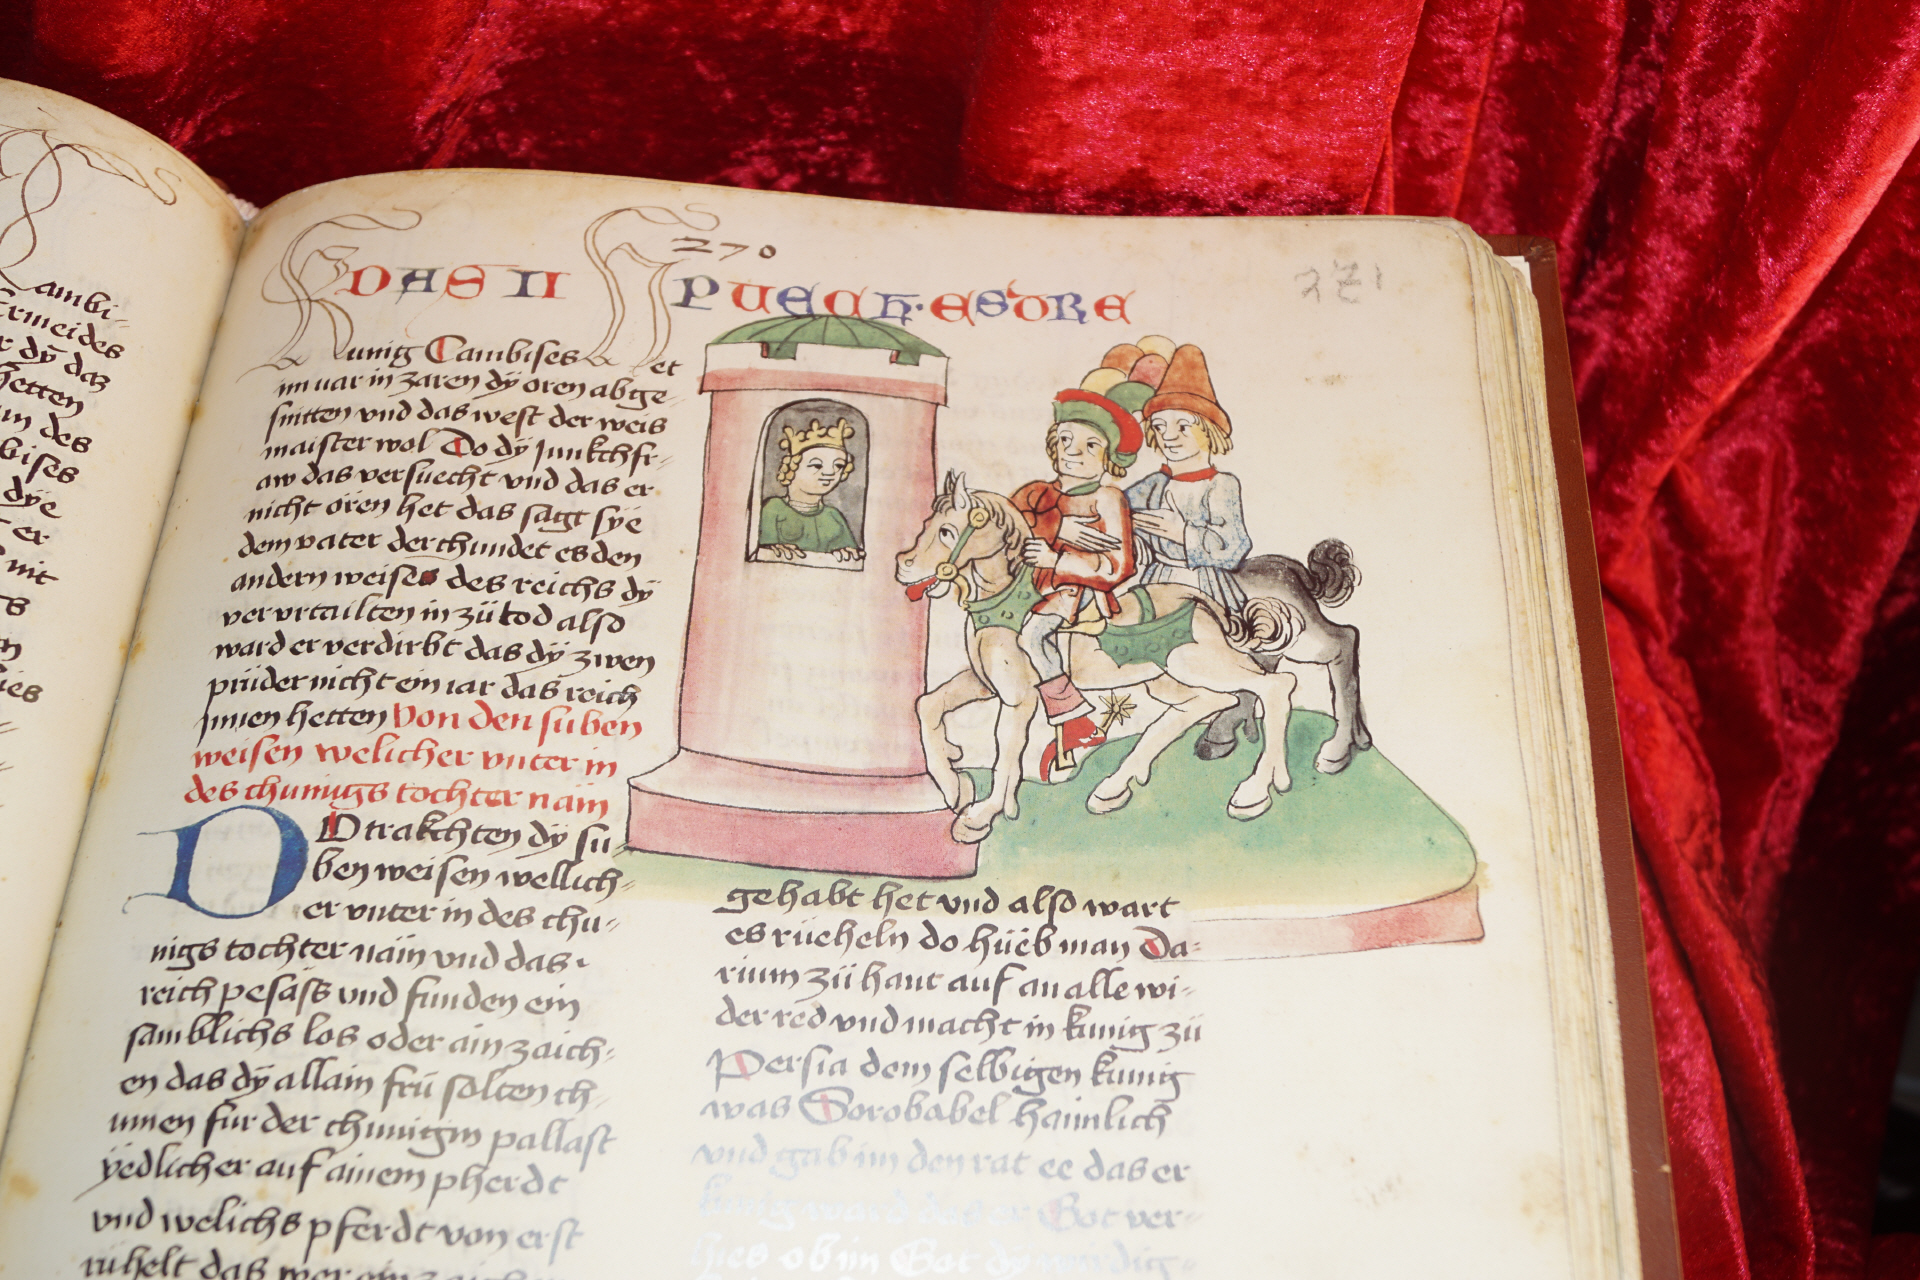 270
271
DAS II PUECH·ESDRE
ambi-
ermeides
r dÿ daz
hetten
un des
bises
dÿe
er
mit
Kunig Cambises Het
im uar in zaren dÿ oren abge-
snitten vnd das west der weis
maister wol Do dÿ Junkchfr-
aw das versuecht vnd das er
nicht ören het das sagt sÿe
dem vater der chundet es den
andern weises des reichs dÿ
ver vrtailten in zü tod also
ward er verdirbt das dÿ zwen
prüder nicht ein iar das reich
jnnen hetten Von den suben
weisen welicher vnter in
des chunigs tochter näm
DO trakchten dÿ su-
ben weisen wellich-
er vnter in des chu-
nigs tochter näm vnd das
reich pesäss vnd funden ein
samblichs los oder ain zaich-
en das dÿ allain frü solten ch-
umen für der chunigin pallast
ÿedlicher auf ainem pherdt
vnd welichs pferdt von erst
rühelt das wer ein zaichen
gehabt het vnd also wart
es rüeheln do hüeb man Da-
rium zü haut auf an alle wi-
der red vnd macht in kunig zü
Persia dem selbigen kunig
was Sorobabel haimlich
vnd gab im den rat ee das er
kunig ward das er Got ver-
hies ob im Got dÿ wirdig-